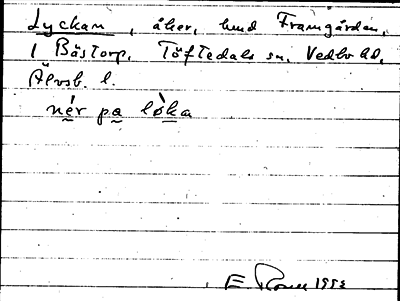 Lyckan, åker, hmd Framgården,
1 Båstorp, Töftedals sn, Vedbo hd,
Älvsb. l.
nér pa lòka
E. 1953